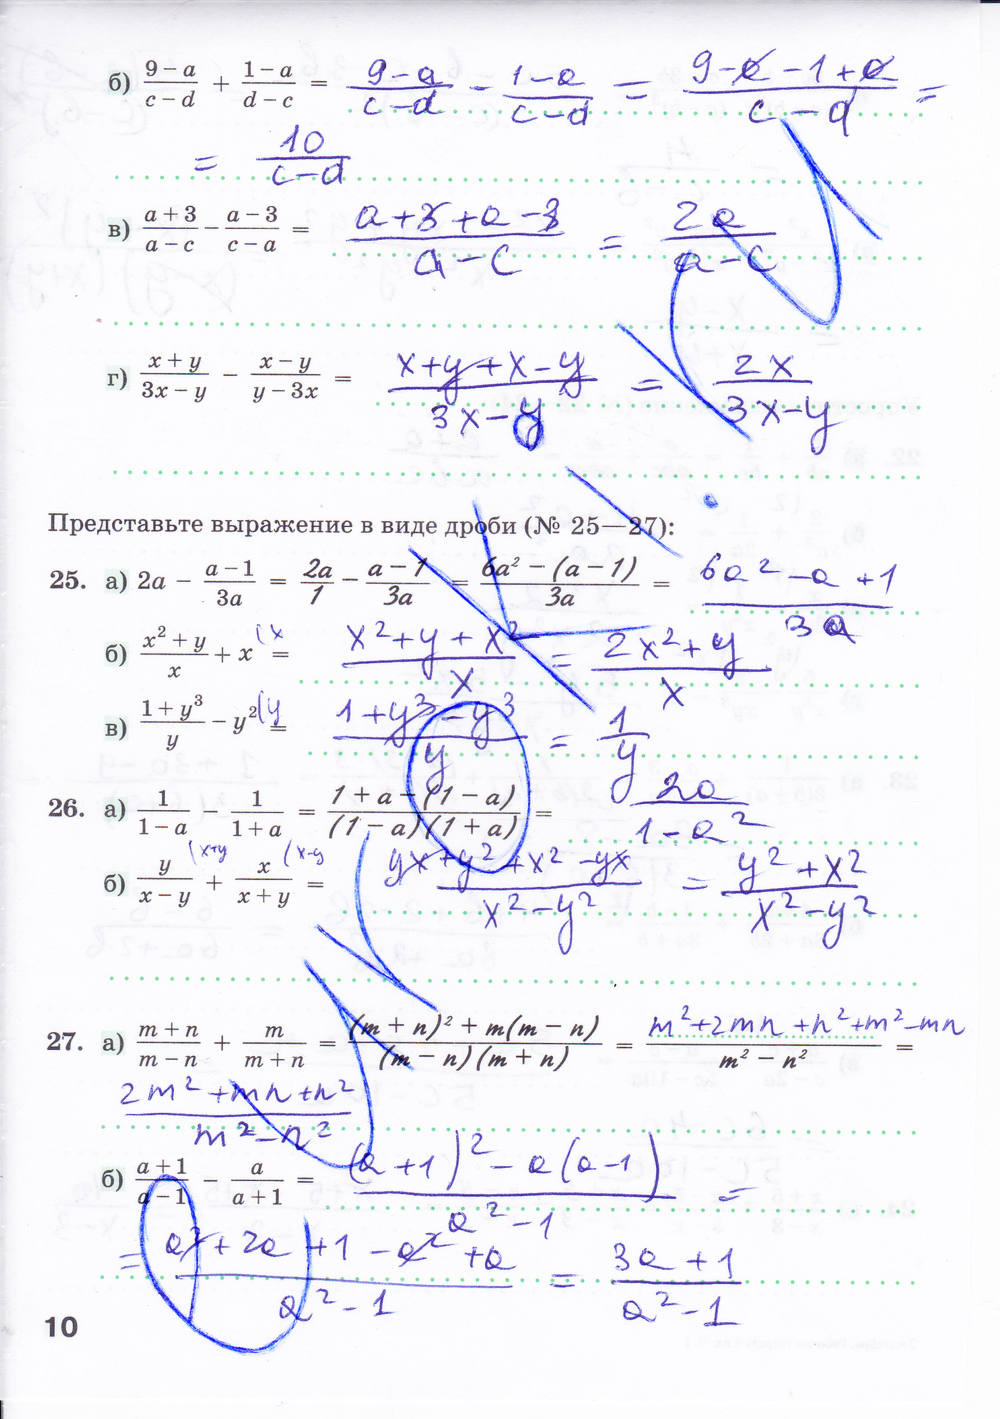 б) (9 − a)/(c − d) + (1 − a)/(d − c) = (9−a)/(c−d) − (1−a)/(c−d) = (9−a−1+a)/(c−d) =
= 10/(c−d)
в) (a + 3)/(a − c) − (a − 3)/(c − a) = (a+3+a−3)/(a−c) = 2a/(a−c)
г) (x + y)/(3x − y) − (x − y)/(y − 3x) = (x+y+x−y)/(3x−y) = 2x/(3x−y)
Представьте выражение в виде дроби (№ 25—27):
25. а) 2a − (a − 1)/3a = 2a/1 − (a − 1)/3a = (6a² − (a − 1))/3a = (6a²−a+1)/3a
б) (x² + y)/x + x (x = (x²+y+x²)/x = (2x²+y)/x
в) (1 + y³)/y − y² (y = (1+y³−y³)/y = 1/y
26. а) 1/(1 − a) − 1/(1 + a) = (1 + a − (1 − a))/((1 − a)(1 + a)) = 2a/(1−a²)
б) y/(x − y) (x+y + x/(x + y) (x−y = (yx+y²+x²−yx)/(x²−y²) = (y²+x²)/(x²−y²)
27. а) (m + n)/(m − n) + m/(m + n) = ((m + n)² + m(m − n))/((m − n)(m + n)) = (m²+2mn+n²+m²−mn)/(m² − n²) =
(2m²+mn+n²)/(m²−n²)
б) (a + 1)/(a − 1) − a/(a + 1) = ((a+1)²−a(a−1))/(a²−1) =
= (a²+2a+1−a²+a)/(a²−1) = (3a+1)/(a²−1)
10